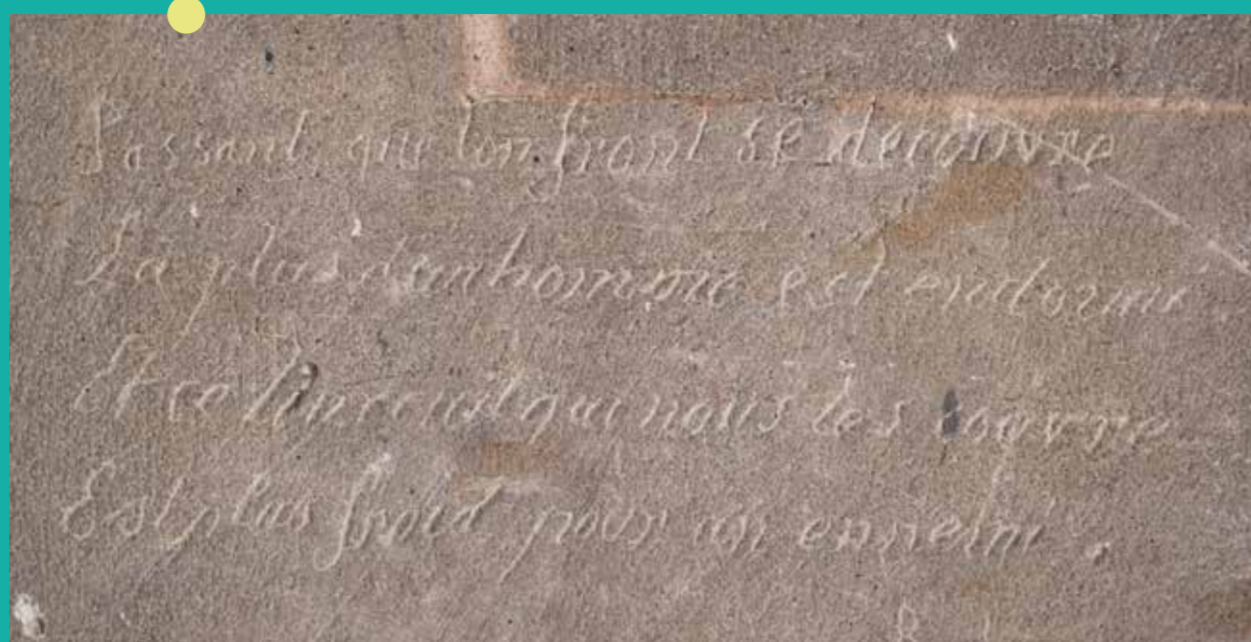 Passant, que ton front se decouvre
La plus d'un homme est endormi
Et ce linceuil qui nous les couvre
Est plus froid pour un ennemi.